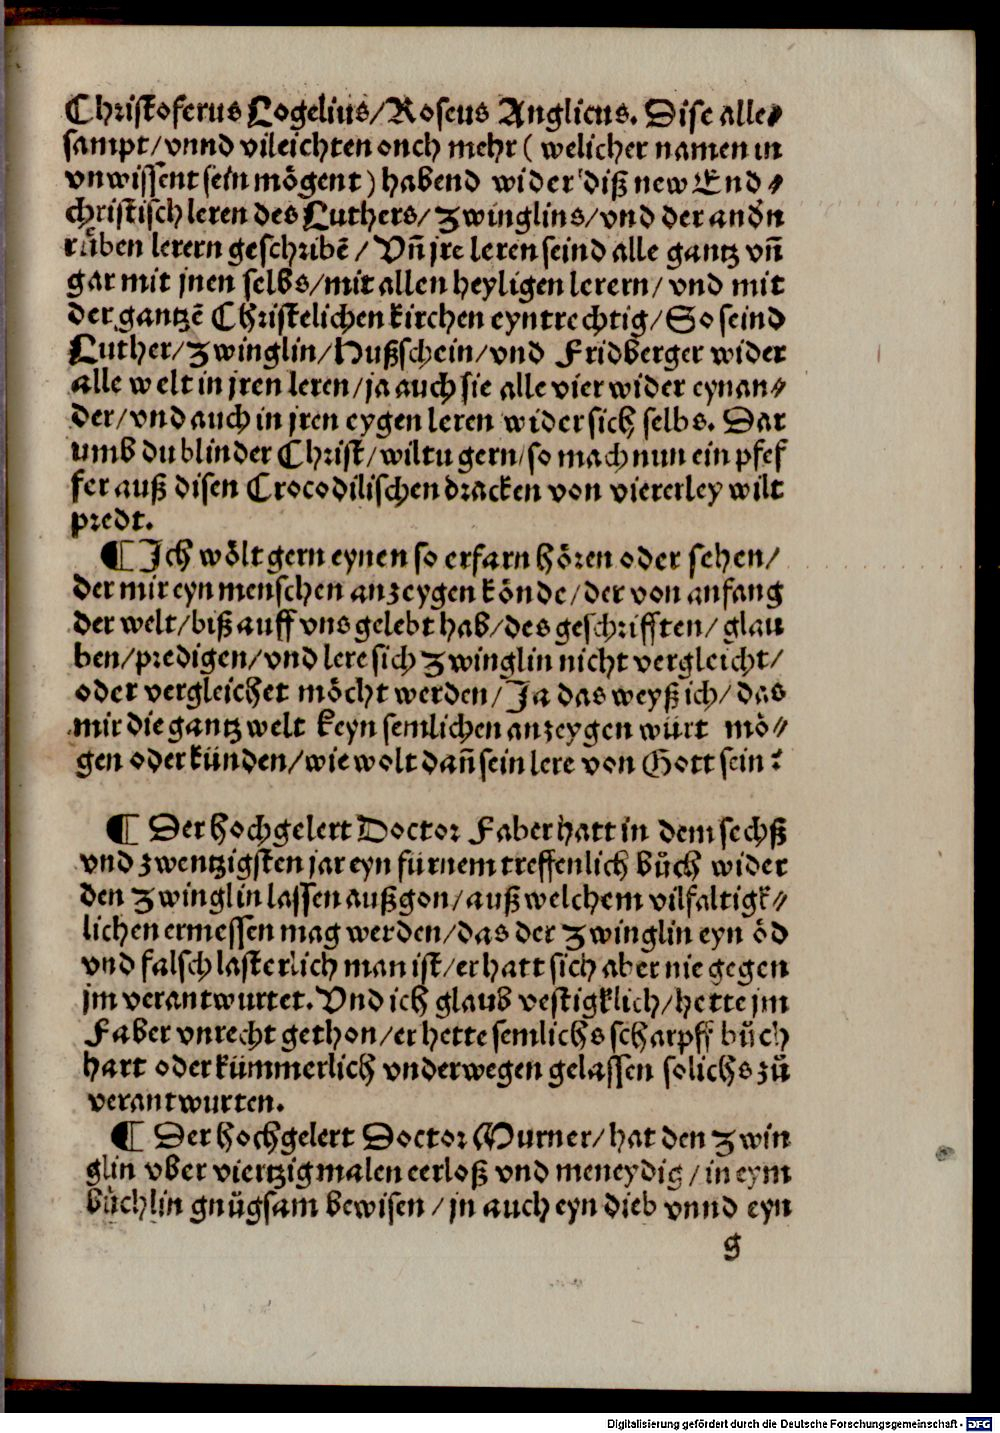 Christoferus Logelius/Roseus Anglicus. Dise alle⸗
sampt/vnnd vileichten onch mehr ( welicher namen in
vnwissent sein mögent ) habend wider diß new End⸗
christisch leren des Luthers/Zwinglins/vnd der andn̄
rüben lerern geschribē / Vn̄ jre leren seind alle gantz vn̄
gar mit jnen selbs/mit allen heyligen lerern/ vnd mit
der gantzē Christelichen kirchen eyntrechtig/So seind
Luther/Zwinglin/Hußschein/vnd Fridberger wider
alle welt in jren leren/ja auch sie alle vier wider eynan⸗
der/vnd auch in jren eygen leren wider sich selbs. Dar
umb du blinder Christ/wiltu gern/so mach nun ein pfef
fer auß disen Crocodilischen dracken von viererley wilt
predt.
¶ Ich wölt gern eynen so erfarn hören oder sehen/
der mir eyn menschen anzeygen könde/der von anfang
der welt/biß auff vns gelebt hab/des geschrifften/ glau
ben/predigen/vnd lere sich Zwinglin nicht vergleicht/
oder vergleichet möcht werden/Ja das weyß ich/das
mir die gantz welt keyn semlichen anzeygen würt mö⸗
gen oder künden/wie wolt dan̄ sein lere von Gott sein?
¶ Der hochgelert Doctor Faber hatt in dem sechß
vnd zwentzigsten jar eyn fürnem treffenlich bůch wider
den Zwinglin lassen außgon/auß welchem vilfaltigk⸗
lichen ermessen mag werden/das der Zwinglin eyn öd
vnd falsch lasterlich man ist/er hatt sich aber nie gegen
jm verantwurtet. Vnd ich glaub vestigklich/hette jm
Faber vnrecht gethon/er hette semlichs scharpff bůch
hart oder kümmerlich vnderwegen gelassen solichs zů
verantwurten.
¶ Der hochgelert Doctor Murner/hat den Zwin
glin vber viertzig malen eerloß vnd meneydig/in eym
bůchlin gnůgsam bewisen / jn auch eyn dieb vnnd eyn
g
Digitalisierung gefördert durch die Deutsche Forschungsgemeinschaft - DFG